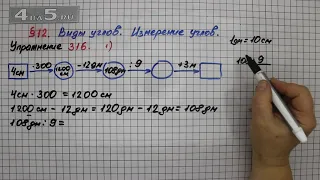 4ALL5.RU
§12. Виды углов. Измерение углов.
Упражнение 316. 1)
1дм = 10см
4см ·300 1200 см -12дм 108дм :9 +3м
108 9
4см · 300 = 1200 см
1200см - 12дм = 120дм - 12дм = 108дм
108дм : 9 =